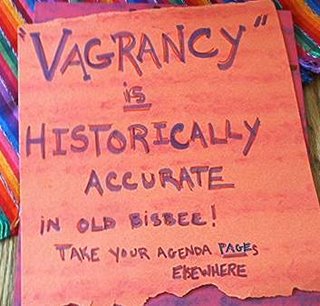 "VAGRANCY"
is
HISTORICALLY
ACCURATE
IN OLD BISBEE!
TAKE YOUR AGENDA PAGES
ELSEWHERE